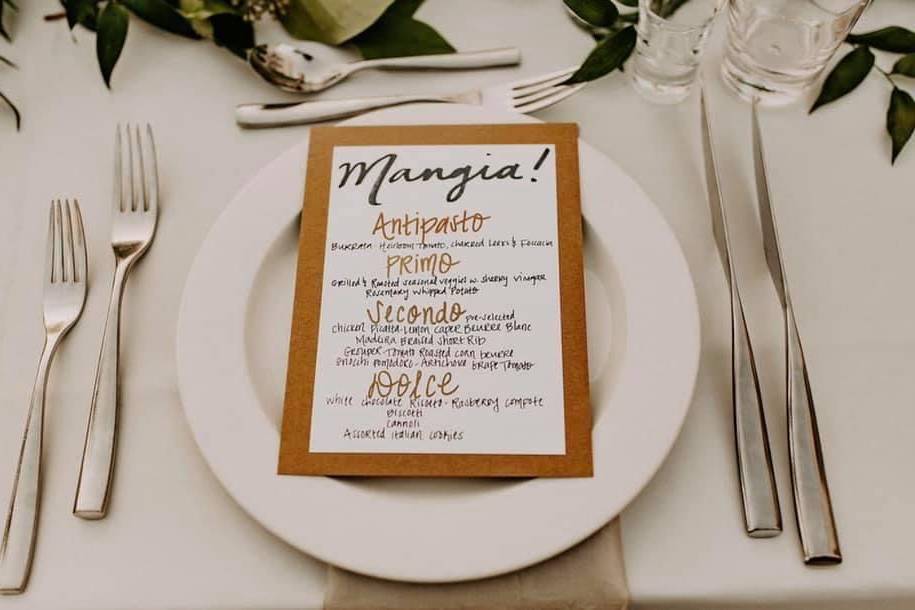 Mangia!
Antipasto
Burrata - Heirloom Tomato, charred Leeks & Foccacia
Primo
Grilled & Roasted seasonal veggies w. sherry vinegar
Rosemary Whipped Potato
Secondo pre-selected
Chicken Picatta - Lemon caper Beurre Blanc
Madeira Braised Short Rib
Grouper - Tomato Roasted corn beurre
Gnocchi Pomodoro - Artichoke Grape Tomato
Dolce
White chocolate Ricotta - Raspberry compote
Biscotti
Cannoli
Assorted Italian cookies